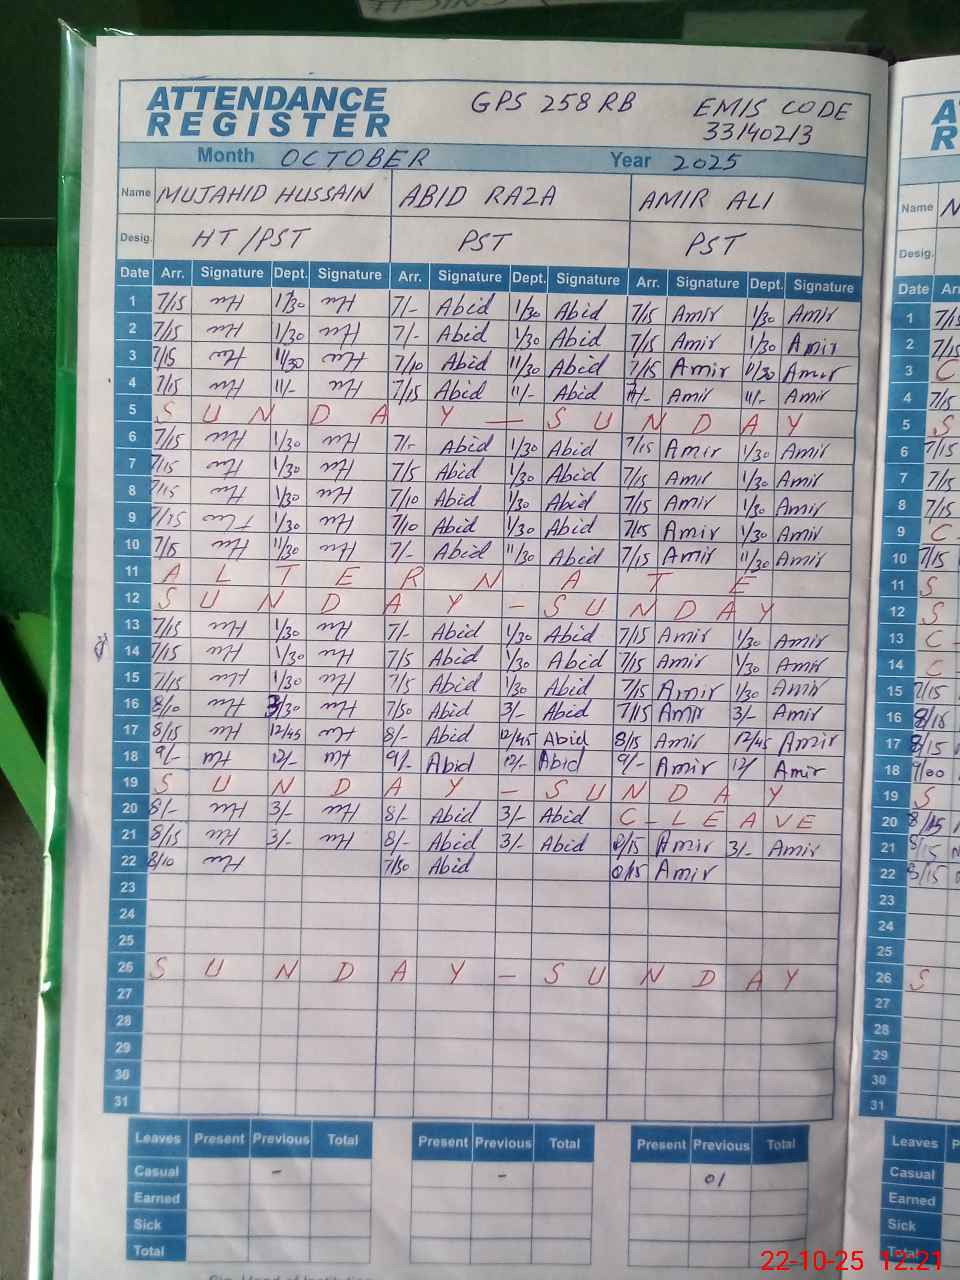 ATTENDANCE REGISTER GPS 258 RB EMIS CODE 33140213
Month OCTOBER Year 2025
Name MUJAHID HUSSAIN ABID RAZA AMIR ALI
Desig. HT/PST PST PST
Date Arr. Signature Dept. Signature Arr. Signature Dept. Signature Arr. Signature Dept. Signature
1 7/15 1/30 7/- Abid 1/30 Abid 7/15 Amir 1/30 Amir
2 7/15 1/30 7/- Abid 1/30 Abid 7/15 Amir 1/30 Amir
3 7/15 11/30 7/10 Abid 11/30 Abid 7/15 Amir 11/30 Amir
4 7/15 11/- 7/15 Abid 11/- Abid Amir 11/- Amir
5 SUNDAY - SUNDAY
6 7/15 1/30 7/- Abid 1/30 Abid 7/15 Amir 1/30 Amir
7 7/15 1/30 7/5 Abid 1/30 Abid 7/15 Amir 1/30 Amir
8 7/15 1/30 7/10 Abid 1/30 Abid 7/15 Amir 1/30 Amir
9 7/15 1/30 7/10 Abid 1/30 Abid 7/15 Amir 1/30 Amir
10 7/15 11/30 7/- Abid 11/30 Abid 7/15 Amir 11/30 Amir
11 ALTERNATE
12 SUNDAY - SUNDAY
13 7/15 1/30 7/- Abid 1/30 Abid 7/15 Amir 1/30 Amir
14 7/15 1/30 7/5 Abid 1/30 Abid 7/15 Amir 1/30 Amir
15 7/15 1/30 7/5 Abid 1/30 Abid 7/15 Amir 1/30 Amir
16 8/10 3/30 7/50 Abid 3/- Abid 7/15 Amir 3/- Amir
17 8/15 12/45 8/- Abid 12/45 Abid 8/15 Amir 12/45 Amir
18 9/- 12/- 9/- Abid 12/- Abid 9/- Amir 12/ Amir
19 SUNDAY - SUNDAY
20 8/- 3/- 8/- Abid 3/- Abid C-LEAVE
21 8/15 3/- 8/- Abid 3/- Abid 8/15 Amir 3/- Amir
22 8/10 7/50 Abid Amir
23
24
25
26 SUNDAY - SUNDAY
27
28
29
30
31
Leaves Present Previous Total Present Previous Total Present Previous Total
Casual - - 01
Earned
Sick
Total
Name
Desig.
Date
1 7/15
2 7/15
3 C
4 7/15
5 S
6 7/15
7 7/15
8 7/15
9 C -
10 7/15
11 S
12 S
13 C -
14 C -
15 7/15
16 8/15
17 8/15
18 9/00
19 S
20 8/15
21 8/15
22 8/15
23
24
25
26 S
27
28
29
30
31
Leaves
Casual
Earned
Sick
Total
22-10-25 12:21